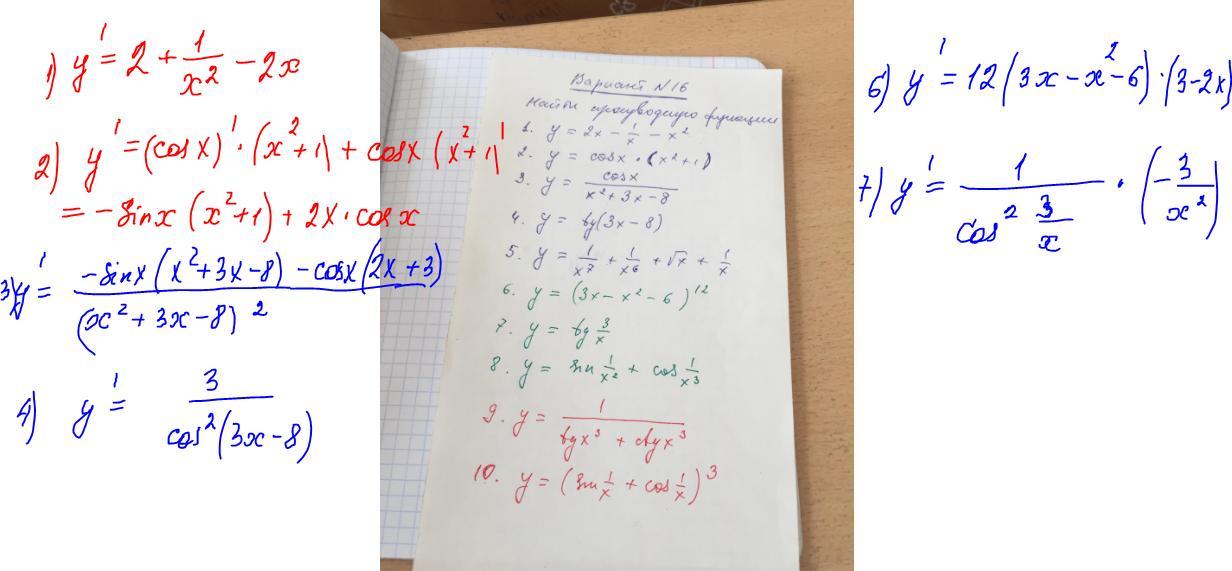 1) y' = 2 + 1/x² - 2x
2) y' = (cosx)' · (x²+1) + cosx (x²+1)'
= -sinx (x²+1) + 2x · cosx
3) y' = (-sinx(x²+3x-8) - cosx(2x+3))/(x²+3x-8)²
4) y' = 3/cos²(3x-8)
Вариант N16
Найти производную функции
1. y = 2x - 1/x - x²
2. y = cosx · (x²+1)
3. y = cosx/(x²+3x-8)
4. y = tg(3x-8)
5. y = 1/x⁷ + 1/x⁶ + √x + 1/x
6. y = (3x-x²-6)¹²
7. y = tg 3/x
8. y = sin 1/x² + cos 1/x³
9. y = 1/(tgx³ + ctgx³)
10. y = (sin 1/x + cos 1/x)³
6) y' = 12(3x-x²-6) · (3-2x)
7) y' = 1/(cos² 3/x) · (-3/x²)